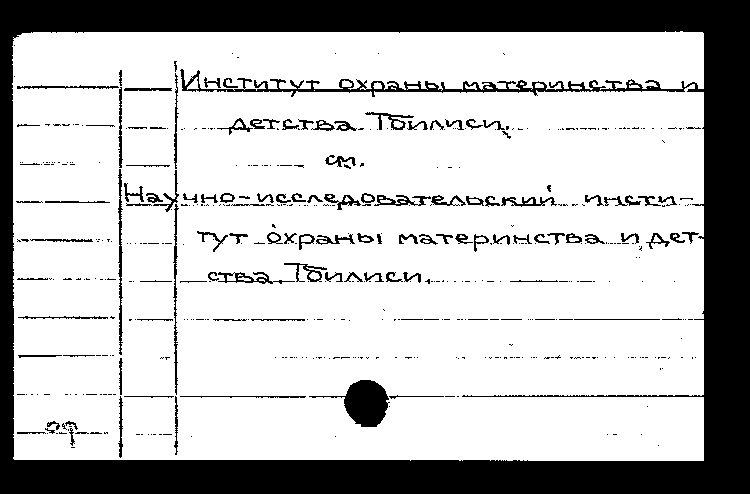 Институт охраны материнства и
детства. Тбилиси.
см.
Научно-исследовательский инсти-
тут охраны материнства и дет-
ства. Тбилиси.